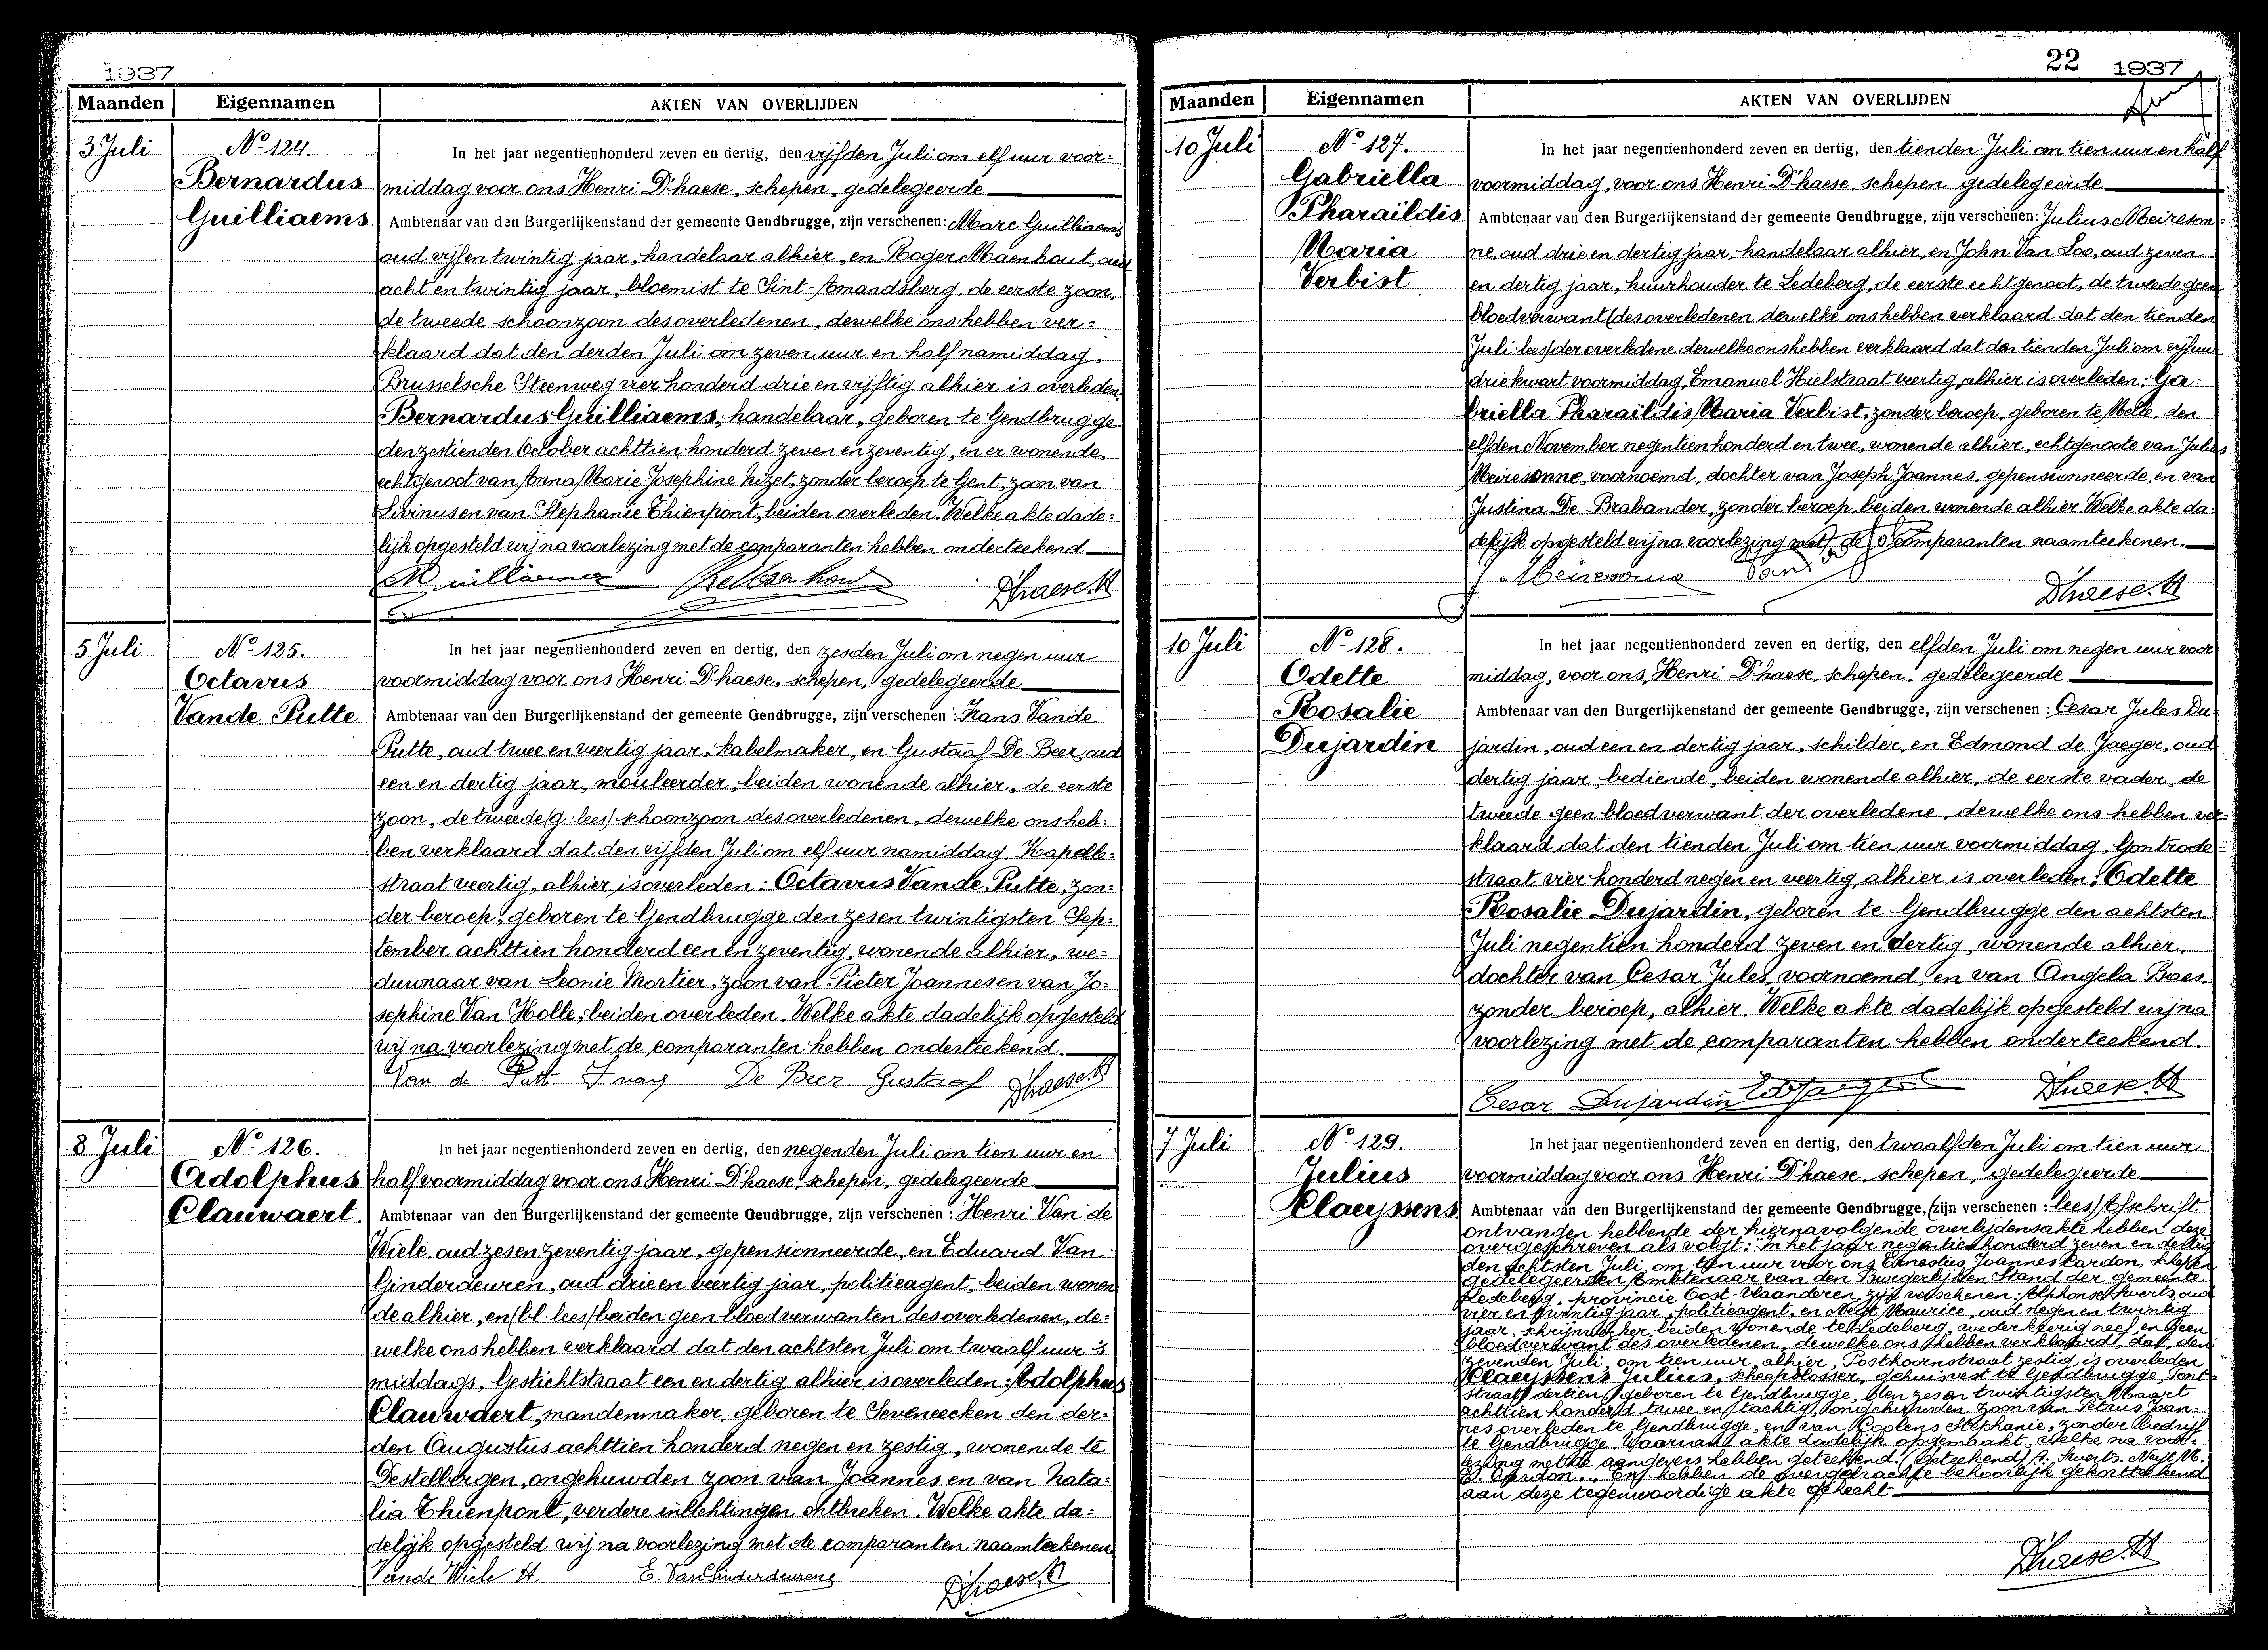 1937
Maanden Eigennamen AKTEN VAN OVERLIJDEN
3 Juli
No 124.
Bernardus
Guilliaems
In het jaar negentienhonderd zeven en dertig, den vijfden Juli om elf uur voor=
middag voor ons Henri D'haese, schepen, gedelegeerde
Ambtenaar van den Burgerlijkenstand der gemeente Gendbrugge, zijn verschenen: Marc Guilliaems
oud vijf en twintig jaar, handelaar alhier, en Roger Maenhout, oud
acht en twintig jaar, bloemist te Sint-Amandsberg, de eerste zoon,
de tweede schoonzoon des overledenen, dewelke ons hebben ver=
klaard dat den derden Juli om zeven uur en half namiddag,
Brusselsche Steenweg vier honderd drie en vijftig alhier is overleden:
Bernardus Guilliaems, handelaar, geboren te Gendbrugge
den zestienden October achttien honderd zeven en zeventig, en er wonende,
echtgenoot van Anna Marie Josephine Huzet, zonder beroep te Gent, zoon van
Livinus en van Stephanie Thienpont, beiden overleden. Welke akte dade=
lijk opgesteld wij na voorlezing met de comparanten hebben onderteekend
D'haese H
5 Juli
No 125.
Octavus
Vande Putte
In het jaar negentienhonderd zeven en dertig, den zesden Juli om negen uur
voormiddag voor ons Henri D'haese, schepen, gedelegeerde
Ambtenaar van den Burgerlijkenstand der gemeente Gendbrugge, zijn verschenen: Frans Vande
Putte, oud twee en veertig jaar, kabelmaker, en Gustaaf De Beer, oud
een en dertig jaar, mouleerder, beiden wonende alhier, de eerste
zoon, de tweede (g. lees) schoonzoon des overledenen, dewelke ons heb=
ben verklaard dat den vijfden Juli om elf uur namiddag, Kapelle=
straat veertig, alhier is overleden: Octavus Vande Putte, zon=
der beroep, geboren te Gendbrugge den zes en twintigsten Sep=
tember achttien honderd een en zeventig, wonende alhier, we=
duwnaar van Leonie Mortier, zoon van Pieter Joannes en van Jo=
sephine Van Holle, beiden overleden. Welke akte dadelijk opgesteld
wij na voorlezing met de comparanten hebben onderteekend.
Van de Putt Frans De Beer Gustaaf D'haese H
8 Juli
No 126.
Adolphus
Clauwaert.
In het jaar negentienhonderd zeven en dertig, den negenden Juli om tien uur en
half voormiddag voor ons Henri D'haese, schepen, gedelegeerde
Ambtenaar van den Burgerlijkenstand der gemeente Gendbrugge, zijn verschenen: Henri Van de
Wiele, oud zes en zeventig jaar, gepensionneerde, en Eduard Van
Ginderdeuren, oud drie en veertig jaar, politieagent, beiden wonen
de alhier, en (bl. lees) beiden geen bloedverwanten des overledenen, de=
welke ons hebben verklaard dat den achtsten Juli om twaalf uur 's
middags, Gestichtstraat een en dertig alhier is overleden: Adolphus
Clauwaert, mandenmaker, geboren te Seveneecken den der=
den Augustus achttien honderd negen en zestig, wonende te
Destelbergen, ongehuwden zoon van Joannes en van Nata=
lia Thienpont, verdere inlichtingen ontbreken. Welke akte da=
delijk opgesteld wij na voorlezing met de comparanten naamteekenen
Vande Wiele H. E. Van Ginderdeuren D'haese H
22 1937
Maanden Eigennamen AKTEN VAN OVERLIJDEN
10 Juli
No 127.
Gabriella
Pharaildis
Maria
Verbist
In het jaar negentienhonderd zeven en dertig, den tienden Juli om tien uur en half
voormiddag, voor ons Henri D'haese, schepen gedelegeerde
Ambtenaar van den Burgerlijkenstand der gemeente Gendbrugge, zijn verschenen: Julius Meireson=
ne, oud drie en dertig jaar, handelaar alhier, en John Van Loo, oud zeven
en dertig jaar, huurhouder te Ledeberg, de eerste echtgenoot, de tweede geen
bloedverwant (des overledenen dewelke ons hebben verklaard dat den tienden
Juli: lees) der overledene dewelke ons hebben verklaard dat den tienden Juli om vijf uur
driekwart voormiddag, Emanuel Hielstraat veertig, alhier is overleden: Ga=
briella Pharaildis Maria Verbist, zonder beroep, geboren te Melle, den
elfden November negentien honderd en twee, wonende alhier, echtgenoote van Julius
Meiresonne, voornoemd, dochter van Joseph Joannes, gepensionneerde, en van
Justina De Brabander, zonder beroep, beiden wonende alhier. Welke akte da
delijk opgesteld wij na voorlezing met de comparanten naamteekenen.
J Meiresonne D'haese H
10 Juli
No 128.
Odette
Rosalie
Dujardin
In het jaar negentienhonderd zeven en dertig, den elfden Juli om negen uur voor
middag, voor ons, Henri D'haese, schepen, gedelegeerde
Ambtenaar van den Burgerlijkenstand der gemeente Gendbrugge, zijn verschenen: Cesar Jules Du
jardin, oud een en dertig jaar, schilder, en Edmond de Jaeger, oud
dertig jaar, bediende, beiden wonende alhier, de eerste vader, de
tweede geen bloedverwant der overledene, dewelke ons hebben ver=
klaard dat den tienden Juli om tien uur voormiddag, Gontrode=
straat vier honderd negen en veertig, alhier is overleden: Odette
Rosalie Dujardin, geboren te Gendbrugge den achtsten
Juli negentien honderd zeven en dertig, wonende alhier,
dochter van Cesar Jules, voornoemd, en van Angela Baes,
zonder beroep, alhier. Welke akte dadelijk opgesteld wij na
voorlezing met de comparanten hebben onderteekend.
Cesar Dujardin D'haese H
7 Juli
No 129.
Julius
Klaeyssens
In het jaar negentienhonderd zeven en dertig, den twaalfden Juli om tien uur
voormiddag voor ons Henri D'haese, schepen, gedelegeerde
Ambtenaar van den Burgerlijkenstand der gemeente Gendbrugge, (zijn verschenen: lees) Afschrift
ontvangen hebbende der hiernavolgende overlijdensakte hebben deze
overgeschreven als volgt: In het jaar negentienhonderd zeven en dertig
den achtsten Juli, om tien uur voor ons Ernestus Joannes Cardon, schepen
gedelegeerden Ambtenaar van den Burgerlijken Stand der gemeente
Ledeberg, provincie Oost-Vlaanderen zijn verschenen: Alphonse Kuerts, oud
vier en twintig jaar, politieagent, en Maurice, oud negen en twintig
jaar, schrijnwerker, beiden wonende te Ledeberg, wederkeerig neef en geen
bloedverwant des overledenen, dewelke ons hebben verklaard, dat, den
zevenden Juli, om tien uur, alhier, Posthoornstraat zestig, is overleden
Klaeyssens Julius, scheepslosser, gehuisvest te Gendbrugge, Pont
straat dertien, geboren te Gendbrugge, den zes en twintigsten Maart
achttien honderd twee en tachtig, ongehuwden zoon van Petrus Joan=
nes overleden te Gendbrugge, en van Coolens Stephanie, zonder bedrijf
te Gendbrugge. Waarvan akte dadelijk opgemaakt, welke na voor=
lezing met de aangevers hebben geteekend. (Geteekend)
E. Cardon. En hebben de overgebrachte behoorlijk gekortteekend
aan deze tegenwoordige akte gehecht
D'haese H